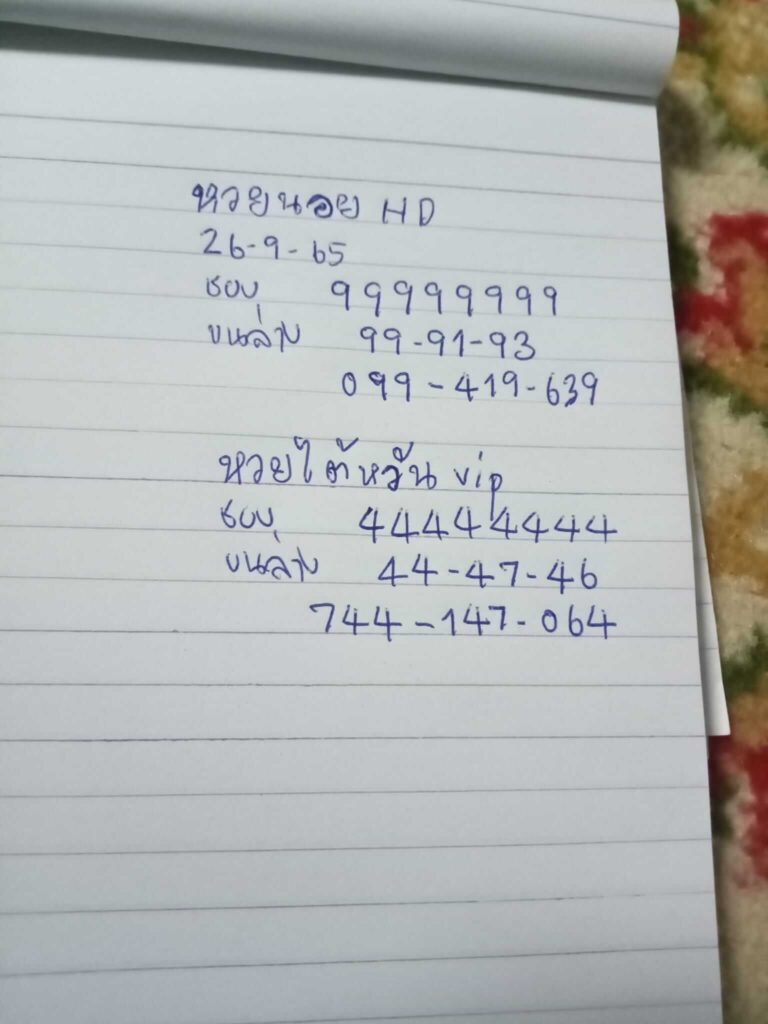 หวยนอย HD
26-9-65
ชอบ 99999999
บนล่าง 99-91-93
099-419-639
หวยไต้หวัน vip
ชอบ 44444444
บนล่าง 44-47-46
744-147-064